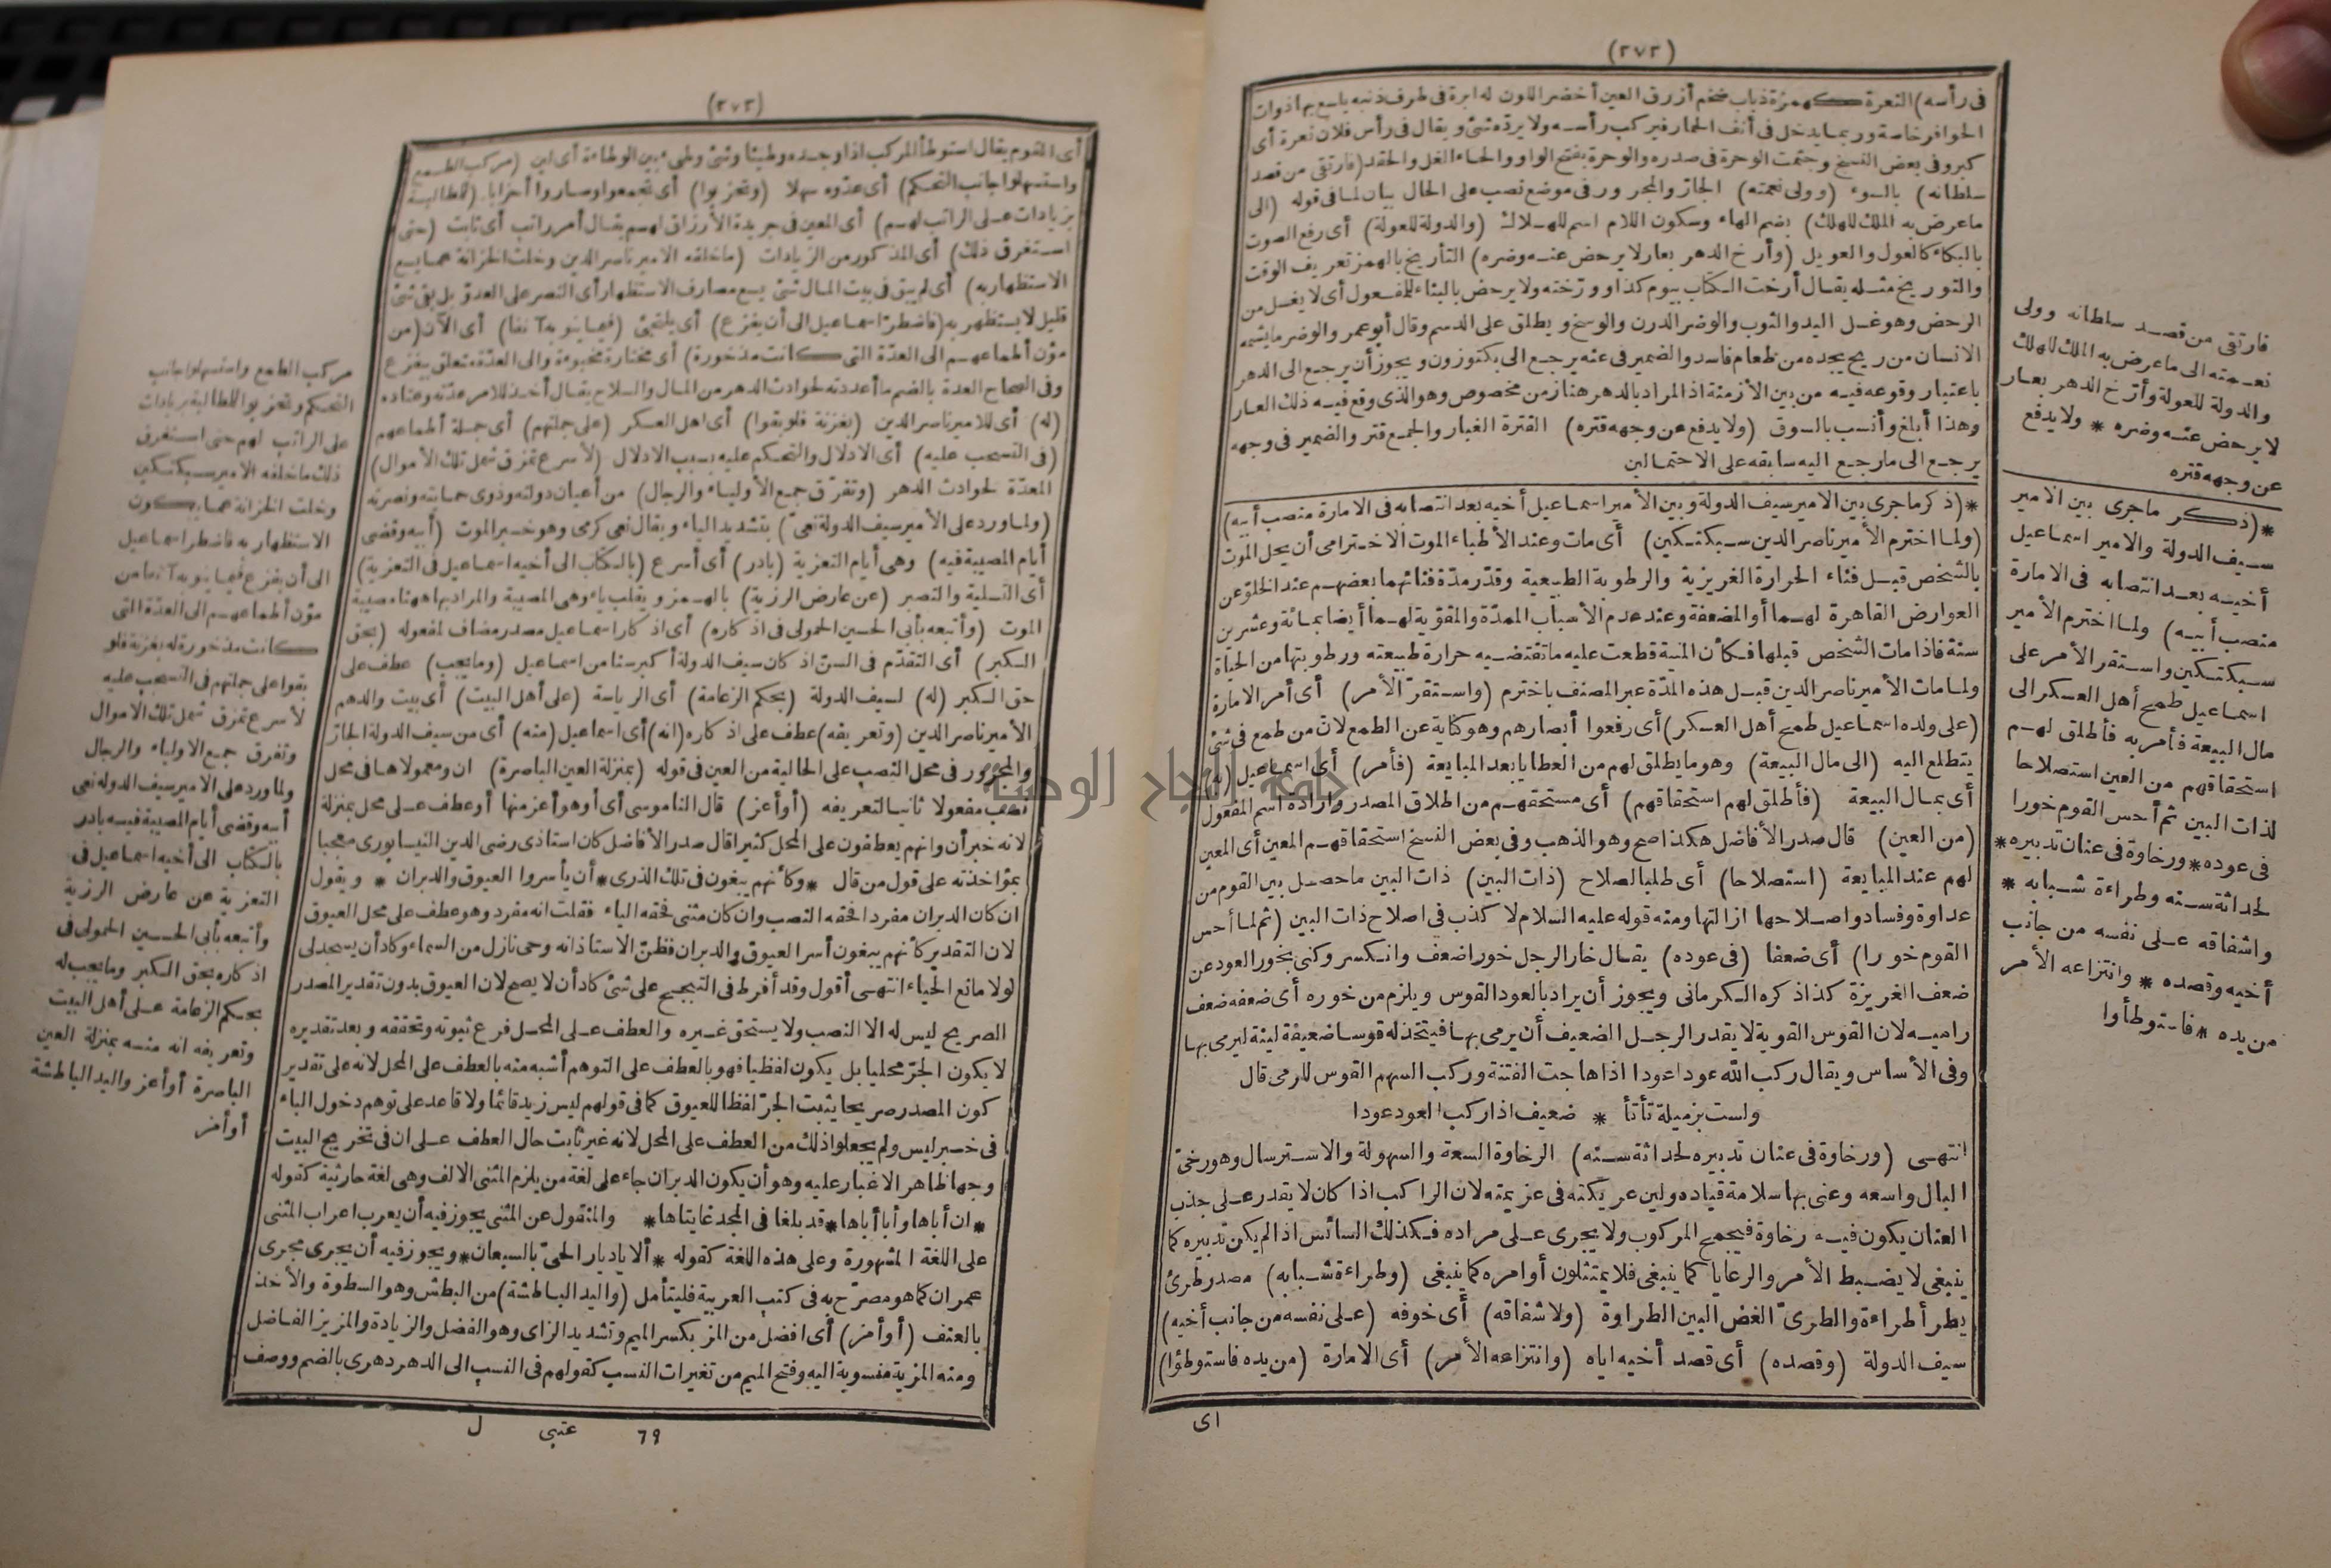 (٢٧٢)
فى رأسه) النعرة كهمزة ذباب ضخم أزرق العين أخضر اللون له ابرة فى طرف ذنبه يلسع بها ذوات
الحوافر خاصة وربما يدخل فى أنف الحمار فيركب رأسه ولا يردّه شئ ويقال فى رأس فلان نعرة أى
كبر وفى بعض النسخ وجثمت الوحرة فى صدره والوحرة بفتح الواو والحاء الغل والحقد (فارتقى من قصد
سلطانه) بالسوء (وولى نعمته) الجار والمجرور فى موضع نصب على الحال بيان لما فى قوله (الى
ما عرض به الملك للهلك) بضم الهاء وسكون اللام اسم للهلاك (والدولة للعولة) أى رفع الصوت
بالبكاء كالعول والعويل (وأرخ الدهر بعار لا يرحض عنه وضره) التأريخ بالهمز تعريف الوقت
والتوريخ مثله يقال أرخت الكتاب بيوم كذا وورّخته ولا يرحض بالبناء للمفعول أى لا يغسل من
الرحض وهو غسل اليد والثوب والوضر الدرن والوسخ ويطلق على الدسم وقال أبو عمر والوضر ما يشمه
الانسان من ريح يجده من طعام فاسد والضمير فى عنه يرجع الى بكتوزون ويجوز أن يرجع الى الدهر
باعتبار وقوعه فيه من بين الأزمنة اذ المراد بالدهر هنا زمن مخصوص وهو الذى وقع فيه ذلك العار
وهذا أبلغ وأنسب بالسوق (ولا يدفع عن وجهه قتره) القترة الغبار والجمع قتر والضمير فى وجهه
يرجع الى ما رجع اليه سابقه على الاحتمالين
*(ذكر ما جرى بين الامير سيف الدولة وبين الأمير اسماعيل أخيه بعد انتصابه فى الامارة منصب أبيه)
(ولما اخترم الأمير ناصر الدين سبكتكين) أى مات وعند الأطباء الموت الاخترامى أن يحل الموت
بالشخص قبل فناء الحرارة الغريزية والرطوبة الطبيعية وقدّر مدّة فنائهما بعضهم عند الخلوّ عن
العوارض القاهرة لهما أو المضعفة وعند عدم الأسباب الممدّة والمقوّية لهما أيضا بمائة وعشرين
سنة فاذا مات الشخص قبلها فكأن المنية قطعت عليه ما تقتضيه حرارة طبيعته ورطوبتها من الحياة
ولما مات الأمير ناصر الدين قبل هذه المدّة عبر المصنف باخترم (واستقرّ الأمر) أى أمر الامارة
(على ولده اسماعيل طمح أهل العسكر) أى رفعوا أبصارهم وهو كناية عن الطمع لان من طمع فى شئ
يتطلع اليه (الى مال البيعة) وهو ما يطلق لهم من العطايا بعد المبايعة (فأمر) أى اسماعيل (به)
أى بمال البيعة (فأطلق لهم استحقاقهم) أى مستحقهم من اطلاق المصدر وارادة اسم المفعول
(من العين) قال صدر الأفاضل هكذا صح وهو الذهب وفى بعض النسخ استحقاقهم المعين أى المعين
لهم عند المبايعة (استصلاحا) أى طلبا لصلاح (ذات البين) ذات البين ما حصل بين القوم من
عداوة وفساد واصلاحها ازالتها ومنه قوله عليه السلام لا كذب فى اصلاح ذات البين (ثم لما أحس
القوم خورا) أى ضعفا (فى عوده) يقال خار الرجل خورا ضعف وانكسر وكنى بخور العود عن
ضعف الغريزة كذا ذكره الكرمانى ويجوز أن يراد بالعود القوس ويلزم من خوره أى ضعفه ضعف
راميه لان القوس القوية لا يقدر الرجل الضعيف أن يرمى بها فيتخذ له قوسا ضعيفة لينة ليرمى بها
وفى الأساس ويقال ركب الله عودا عودا اذا هاجت الفتنة وركب السهم القوس للرمى قال
ولست بزميلة نأنأ * ضعيف اذا ركب العود عودا
انتهى (ورخاوة فى عنان تدبيره لحداثة سنه) الرخاوة السعة والسهولة والاسترسال وهو رخىّ
البال واسعه وعنى بها سلامة قياده ولين عريكته فى عزيمته لان الراكب اذا كان لا يقدر على جذب
العنان يكون فيه رخاوة فيجمح المركوب ولا يجرى على مراده فكذلك السائس اذا لم يكن تدبيره كما
ينبغى لا يضبط الأمر والرعايا كما ينبغى فلا يمتثلون أوامره كما ينبغى (وطراءة شبابه) مصدر طرئ
يطرأ طراءة والطرىّ الغض البين الطراوة (ولاشفاقه) أى خوفه (على نفسه من جانب أخيه)
سيف الدولة (وقصده) أى قصد أخيه اياه (وانتزاعه الأمر) أى الامارة (من يده فاستوطؤا)
اى
فارتقى من قصد سلطانه وولى
نعمته الى ما عرض به الملك للهلك
والدولة للعولة وأرّخ الدهر بعار
لا يرحض عنه وضره * ولا يدفع
عن وجهه قتره
*(ذكر ما جرى بين الامير
سيف الدولة والامير اسماعيل
أخيه بعد انتصابه فى الامارة
منصب أبيه) ولما اخترم الأمير
سبكتكين واستقر الأمر على
اسماعيل طمح أهل العسكر الى
مال البيعة فأمر به فأطلق لهم
استحقاقهم من العين استصلاحا
لذات البين ثم أحس القوم خورا
فى عوده * ورخاوة فى عنان تدبيره *
لحداثة سنه وطراءة شبابه *
واشفاقه على نفسه من جانب
أخيه وقصده * وانتزاعه الأمر
من يده * فاستوطأوا
(٢٧٣)
أى القوم يقال استوطأ المركب اذا وجده وطيئا وشئ وطىء بين الوطاءة أى لين (مركب الطمع
واستسهلوا جانب التحكم) أى عدّوه سهلا (وتحزبوا) أى تجمعوا وصاروا أحزابا (للمطالبة
بزيادات على الراتب لهم) أى المعين فى جريدة الأرزاق لهم يقال أمر راتب أى ثابت (حتى
استغرق ذلك) أى المذكور من الزيادات (ما خلفه الامير ناصر الدين وخلت الخزانة عما يسع
الاستظهار به) أى لم يبق فى بيت المال شئ يسع مصارف الاستظهار أى النصر على العدوّ بل بقى شئ
قليل لا يستظهر به (فاضطرّ اسماعيل الى أن يفزع) أى يلتجئ (فيما ينوبه آنفا) أى الآن (من
مؤن أطماعهم الى العدّة التى كانت مذخورة) أى مختارة مخبوءة والى العدّة متعلق بيفزع
وفى الصحاح العدة بالضم ما أعددته لحوادث الدهر من المال والسلاح يقال أخذ للامر عدّته وعتاده
(له) أى للامير ناصر الدين (بغزنة فلو بقوا) أى اهل العسكر (على جملتهم) أى جملة أطماعهم
(فى التسحب عليه) أى الادلال والتحكم عليه بسبب الادلال (لأسرع تمزق شمل تلك الأموال)
المعدّة لحوادث الدهر (وتفرّق جمع الأولياء والرجال) من أعيان دولته وذوى حمايته ونصرته
(ولما ورد على الأمير سيف الدولة نعىّ) بتشديد الياء ويقال نعى كرمى وهو خبر الموت (أبيه وقضى
أيام المصيبة فيه) وهى أيام التعزية (بادر) أى أسرع (بالكتاب الى أخيه اسماعيل فى التعزية)
أى التسلية والتصبر (عن عارض الرزية) بالهمز ويقلب ياء وهى المصيبة والمراد بها ههنا مصيبة
الموت (وأتبعه بأبى الحسين الحمولى فى اذكاره) أى اذكار اسماعيل مصدر مضاف لمفعوله (بحق
الكبر) أى التقدّم فى السنّ اذ كان سيف الدولة أكبر سنا من اسماعيل (وما يجب) عطف على
حق الكبر (له) لسيف الدولة (بحكم الزعامة) أى الرياسة (على أهل البيت) أى بيت والدهم
الأمير ناصر الدين (وتعريفه) عطف على اذكاره (انه) أى اسماعيل (منه) أى من سيف الدولة الجارّ
والمجرور فى محل النصب على الحالية من العين فى قوله (بمنزلة العين الباصرة) ان ومعمولاها فى محل
نصب مفعولا ثانيا لتعريفه (أو أعز) قال الناموسى أى أو هو أعز منها أو عطف على محل بمنزلة
لانه خبر أن وانهم يعطفون على المحل كثيرا قال صدر الأفاضل كان استاذى رضى الدين النيسابورى معجبا
بمؤاخذته على قول من قال * وكأنهم يبغون فى تلك الذرى * أن يأسروا العيوق والدبران * ويقول
ان كان الدبران مفردا فحقه النصب وان كان مثنى فحقه الياء فقلت انه مفرد وهو عطف على محل العيوق
لان التقدير كأنهم يبغون أسرا لعيوق والدبران فظنّ الاستاذ انه وحى نازل من السماء وكاد أن يسجد لى
لولا مانع الحياء انتهى أقول وقد أفرط فى التبجح على شئ كاد أن لا يصح لان العيوق بدون تقدير المصدر
الصريح ليس له الا النصب ولا يستحق غيره والعطف على المحل فرع ثبوته وتحققه وبعد تقديره
لا يكون الجرّ محليا بل يكون لفظيا فهو بالعطف على التوهم أشبه منه بالعطف على المحل لانه على تقدير
كون المصدر صريحا يثبت الجرّ لفظا للعيوق كما فى قولهم ليس زيد قائما ولا قاعد على توهم دخول الباء
فى خبر ليس ولم يجعلوا ذلك من العطف على المحل لانه غير ثابت حال العطف على ان فى تخريج البيت
وجها ظاهر الاغبار عليه وهو أن يكون الدبران جاء على لغة من يلزم المثنى الالف وهى لغة حارثية كقوله
* ان أباها وأبا أباها * قد بلغا فى المجد غايتاها * والمنقول عن المثنى يجوز فيه أن يعرب اعراب المثنى
على اللغة المشهورة وعلى هذه اللغة كقوله * ألا يا ديار الحىّ بالسبعان * ويجوز فيه أن يجرى مجرى
عمران كما هو مصرّح به فى كتب العربية فليتأمل (واليد الباطشة) من البطش وهو السطوة والأخذ
بالعنف (أو أمز) أى افضل من المز بكسر الميم وتشديد الزاى وهو الفضل والزيادة والمزيز الفاضل
ومنه المزية منسوبة اليه وفتح الميم من تغيرات النسب كقولهم فى النسب الى الدهر دهرى بالضم ووصف
٦٩ عتبى ل
مركب الطمع واستسهلوا جانب
التحكم وتحزبوا للمطالبة بزيادات
على الراتب لهم حتى استغرق
ذلك ما خلفه الامير سبكتكين
وخلت الخزانة عما يكون
الاستظهار به فاضطر اسماعيل
الى أن يفزع فيما ينوبه آنفا من
مؤن أطماعهم الى العدّة التى
كانت مذخورة له بغزنة فلو
بقوا على جملتهم فى التسحب عليه
لأسرع تمزق شمل تلك الاموال
وتفرق جميع الاولياء والرجال
ولما ورد على الامير سيف الدولة نعى
أبيه وقضى أيام المصيبة فيه بادر
بالكتاب الى أخيه اسماعيل فى
التعزية عن عارض الرزية
وأتبعه بأبى الحسين الحمولى فى
اذكاره بحق الكبر وما يجب له
بحكم الزعامة على أهل البيت
وتعريفه انه منسه بمنزلة العين
الباصرة أو أعز واليد الباطشة
أو أمز
جامعة النجاح الوطنية